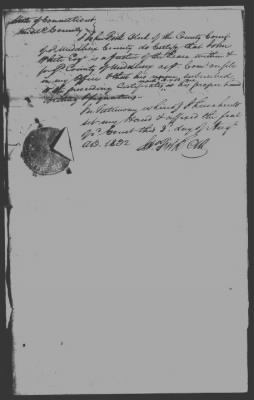 State of Connecticut
Middx County
I John Fisk Clerk of the County Court
of sd Middlesex County do Certify that John
White Esqr is a Justice of the Peace within &
for sd County of Middlesex as pr Com on file
in my Office & that his name subscribed
to the preceding Certificates is his proper hand
writing & signature
In Testimony whereof I hereunto
set my Hand & affixed the seal
of sd Court this 2d day of Augt
AD. 1832
Jno Fisk Clk